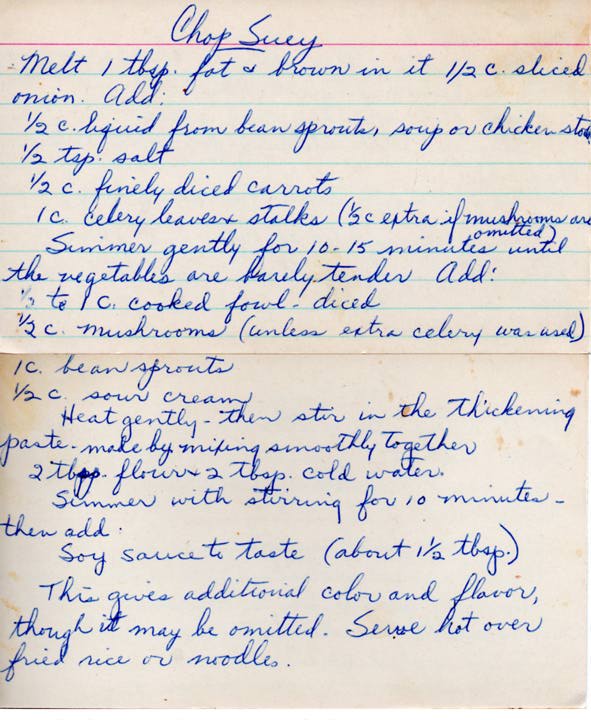 Chop Suey
Melt 1 tbsp. fat & brown in it 1/2 c. sliced
onion. Add:
1/2 c. liquid from bean sprouts, soup or chicken stock
1/2 tsp. salt
1/2 c. finely diced carrots
1 c. celery leaves & stalks (1/2 c extra if mushrooms are
omitted)
Simmer gently for 10-15 minutes until
the vegetables are barely tender Add:
1/2 to 1 c. cooked fowl - diced
1/2 c. mushrooms (unless extra celery was used)
1 c. bean sprouts
1/2 c. sour cream
Heat gently - then stir in the thickening
paste - made by mixing smoothly together
2 tbsp. flour & 2 tbsp. cold water.
Simmer with stirring for 10 minutes -
then add:
Soy sauce to taste (about 1 1/2 tbsp.)
This gives additional color and flavor,
though it may be omitted. Serve hot over
fried rice or noodles.